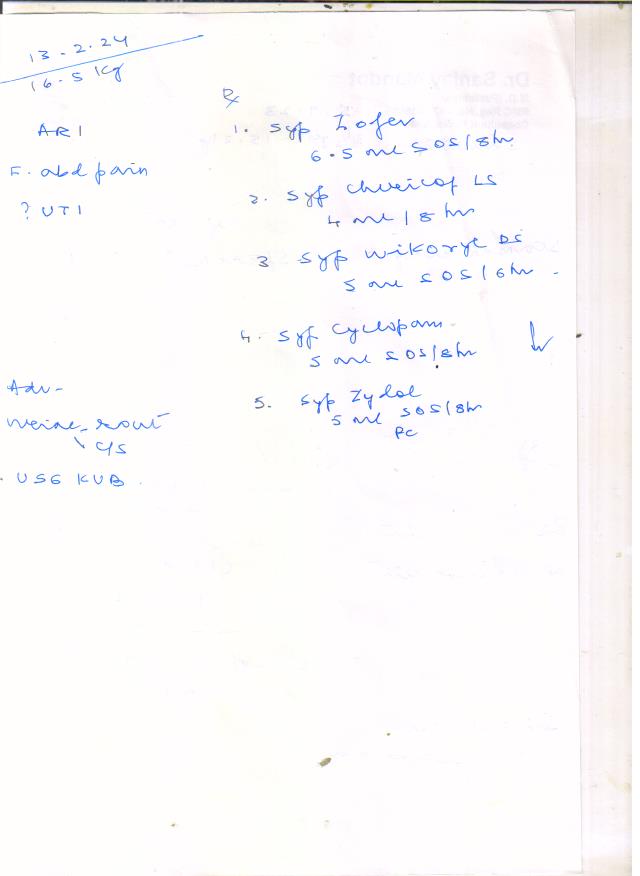 13.2.24
16.5 kg
ARI
F. abd pain
? UTI
Rx
1. Syp Zofer
6.5 ml SOS/8hr
2. Syp LS
4 ml/8 hr
3 Syp Wikoryl DS
5 ml SOS/6hr
4. Syp Cyclopam
5 ml SOS/8hr
5. Syp Zydol
5 ml SOS/8hr
PC
Adv-
Urine - rout
C/S
. USG KUB.